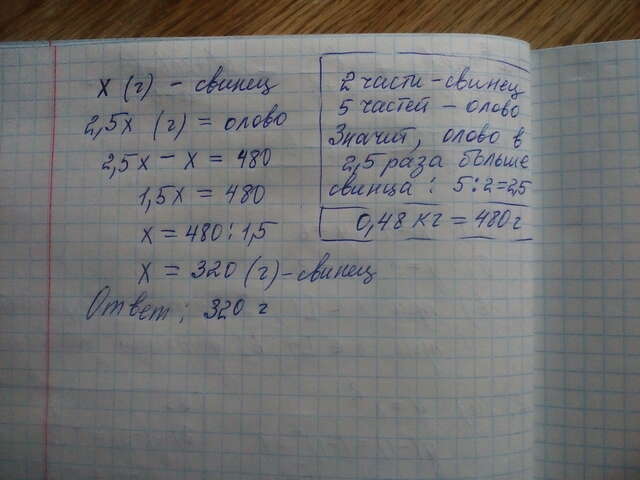 х (г) - свинец
2,5х (г) = олово
2,5х - х = 480
1,5х = 480
х = 480 : 1,5
х = 320 (г) - свинец
Ответ: 320 г
2 части - свинец
5 частей - олово
Значит, олово в
2,5 раза больше
свинца: 5:2=2,5
0,48 кг = 480 г